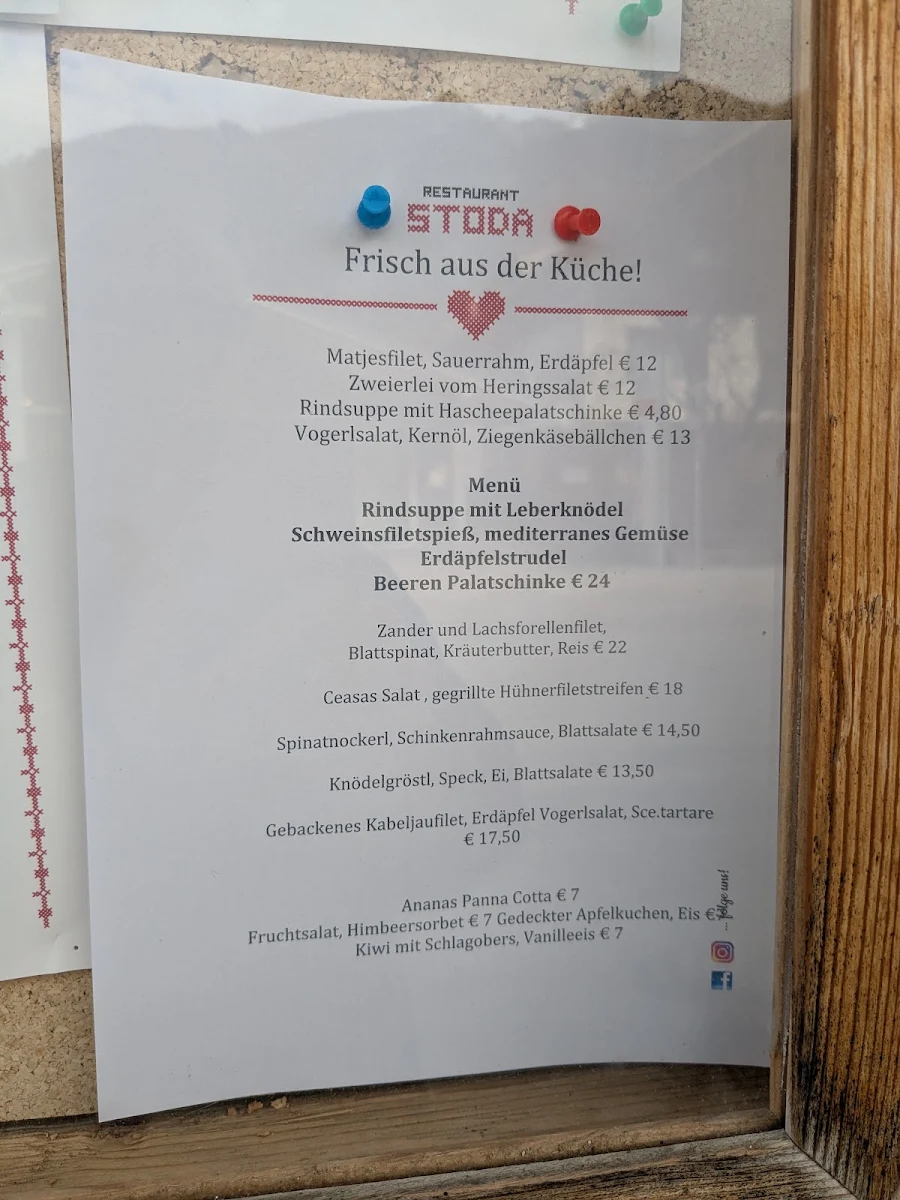 RESTAURANT
STODA
Frisch aus der Küche!
Matjesfilet, Sauerrahm, Erdäpfel € 12
Zweierlei vom Heringssalat € 12
Rindsuppe mit Hascheepalatschinke € 4,80
Vogerlsalat, Kernöl, Ziegenkäsebällchen € 13
Menü
Rindsuppe mit Leberknödel
Schweinsfiletspieß, mediterranes Gemüse
Erdäpfelstrudel
Beeren Palatschinke € 24
Zander und Lachsforellenfilet,
Blattspinat, Kräuterbutter, Reis € 22
Ceasas Salat , gegrillte Hühnerfiletstreifen € 18
Spinatnockerl, Schinkenrahmsauce, Blattsalate € 14,50
Knödelgröstl, Speck, Ei, Blattsalate € 13,50
Gebackenes Kabeljaufilet, Erdäpfel Vogerlsalat, Sce.tartare
€ 17,50
Ananas Panna Cotta € 7
Fruchtsalat, Himbeersorbet € 7 Gedeckter Apfelkuchen, Eis €
Kiwi mit Schlagobers, Vanilleeis € 7
... folge uns!